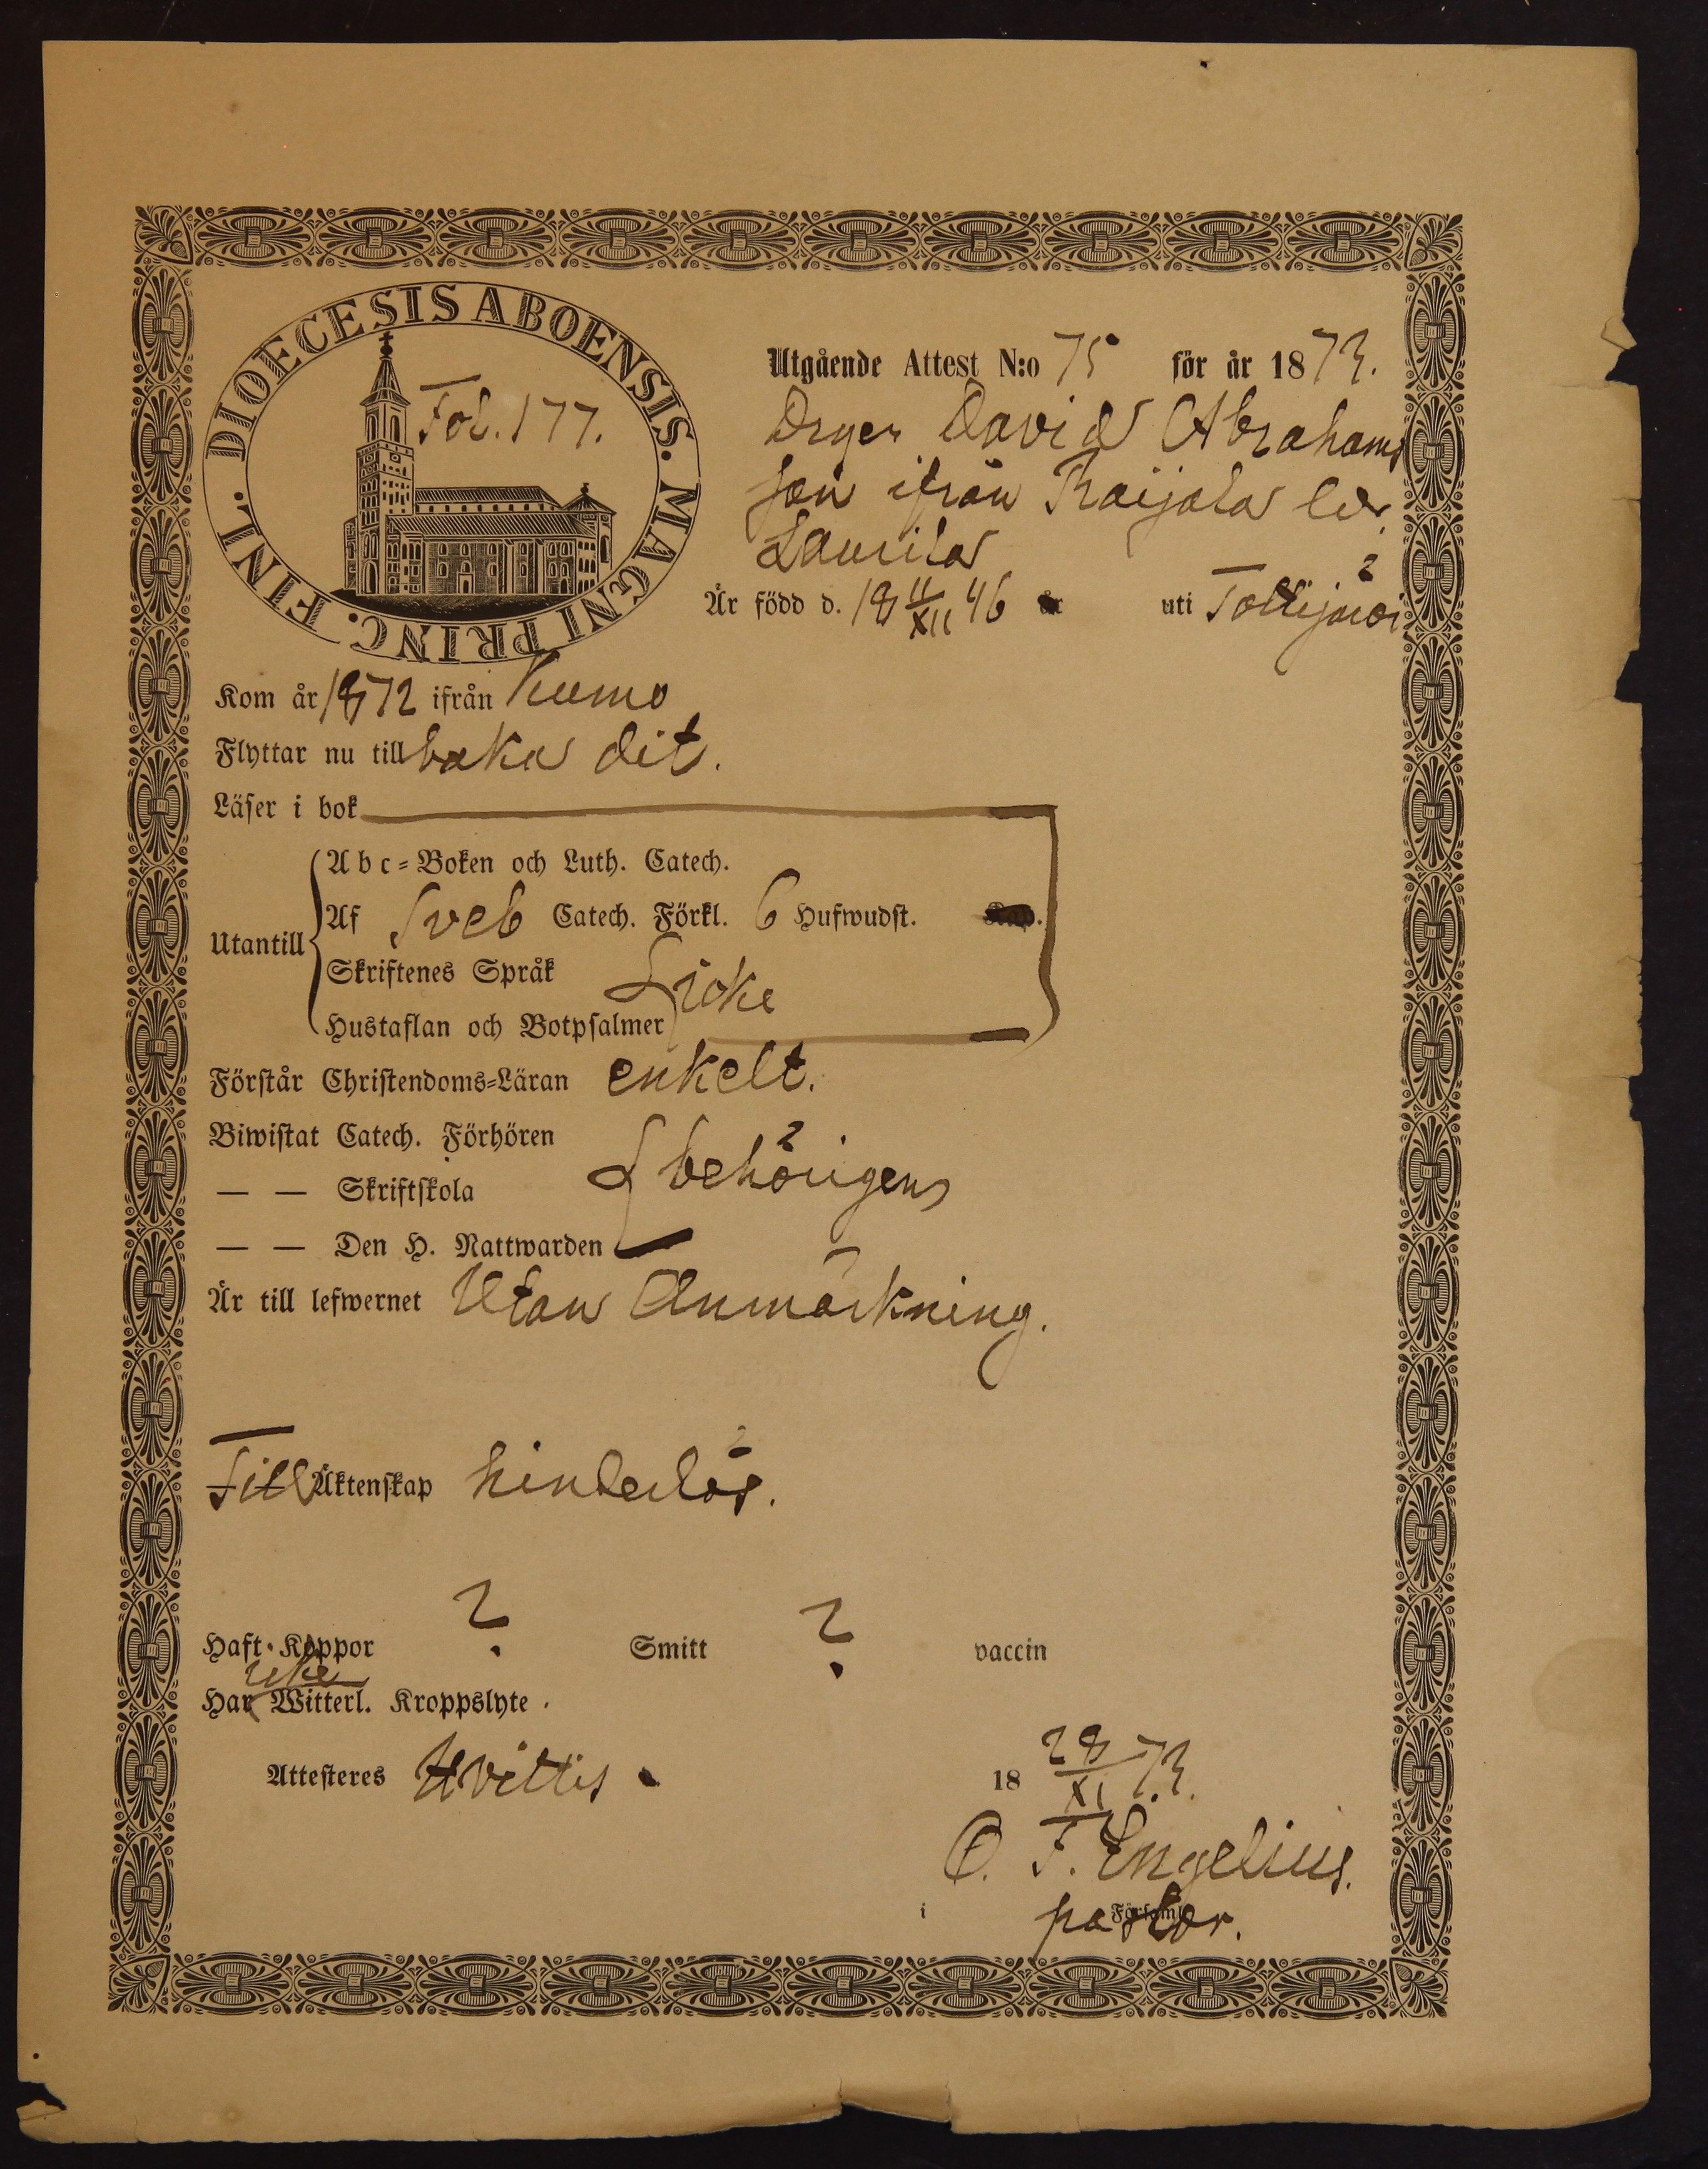 DIOECESIS ABOENSIS. MAGNI PRINC. FINL.
Fol. 177.
Utgående Attest N:o 75 för år 1873.
Dryen David Abrahams
son ifrån Raijala
Laurila
Är född d. 18 11/XII 46 uti
Kom år 1872 ifrån Kumo
Flyttar nu till baka dit.
Läser i bok
Utantill
Abc-Boken och Luth. Catech.
Af Sveb Catech. Förkl. 6 Hufwudst.
Skriftenes Språk
Hustaflan och Botpsalmer icke
Förstår Christendoms-Läran enkelt.
Biwistat Catech. Förhören
— — Skriftskola behörigen
— — Den H. Nattwarden
Är till lefwernet Utan Anmärkning.
Till Äktenskap hinderlös.
Haft Koppor ? Smitt ? vaccin
icke
Har Witterl. Kroppslyte.
Attesteres Hvittis 18 28/XI 73.
O. F. Engelius.
i Församl.
pastor.